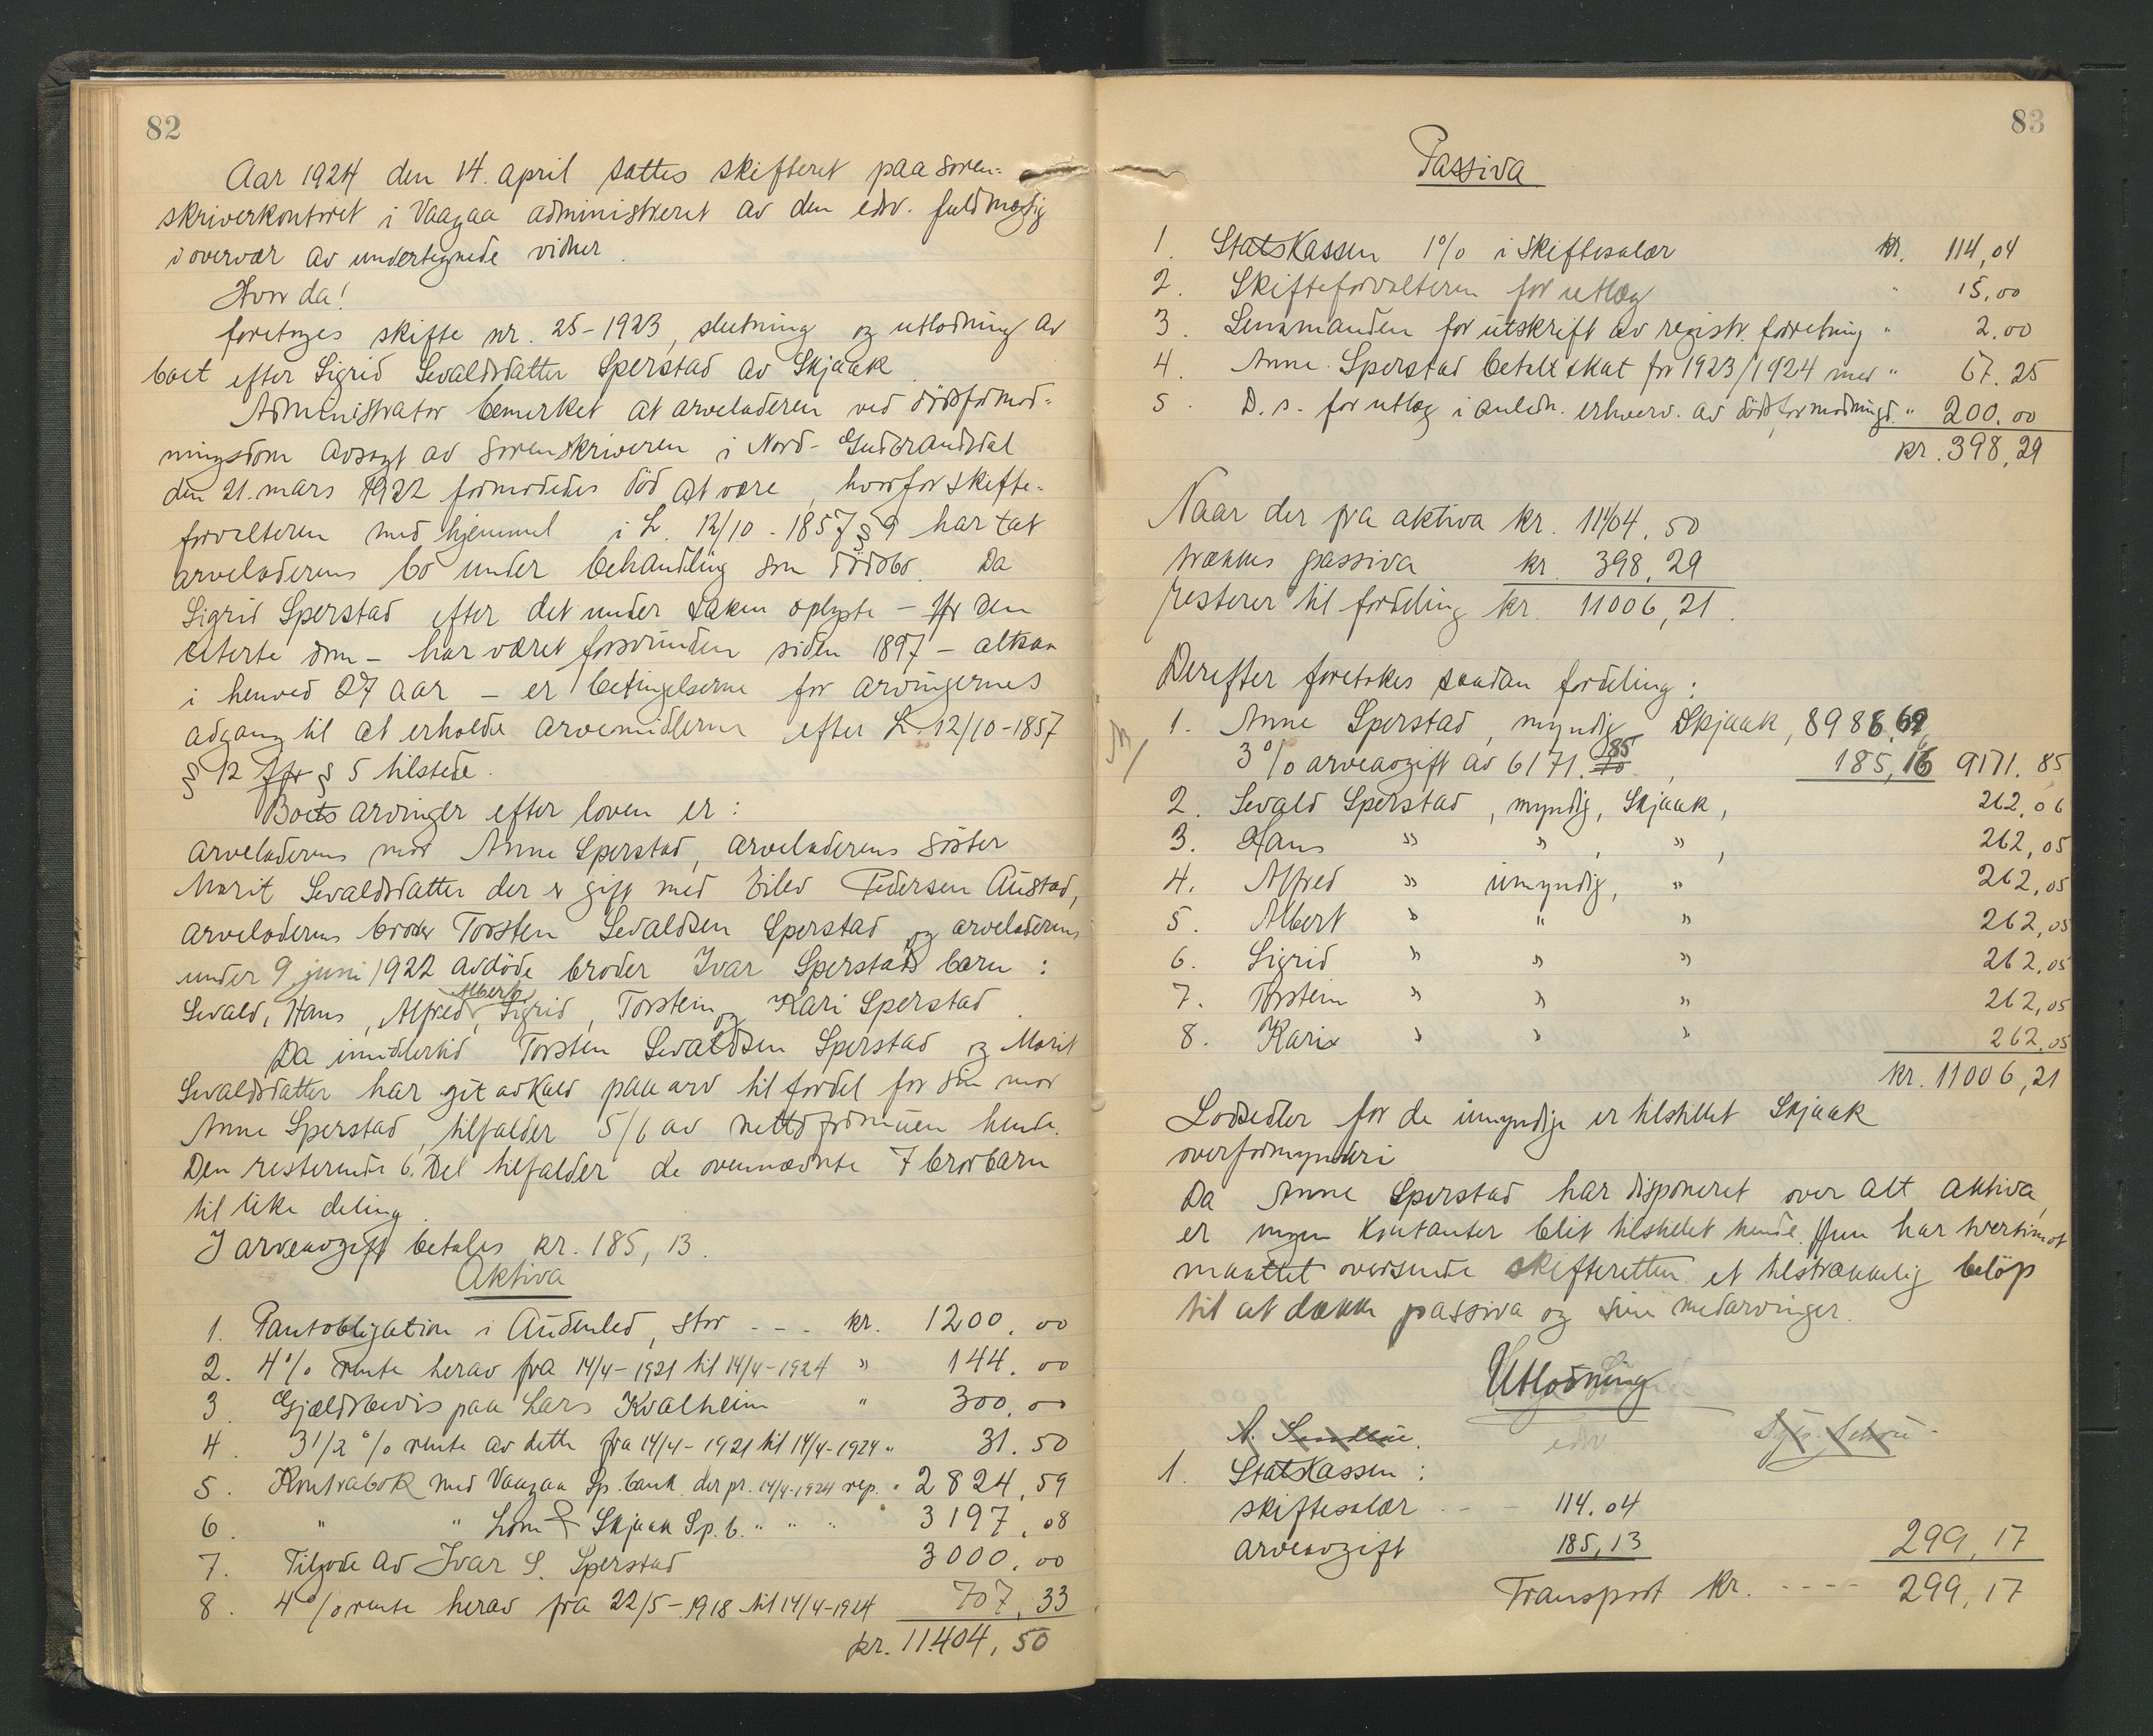 82
Aar 1924 den 14. april sattes skifteret paa soren-
skriverkontoret i Vaagaa administreret av den edsv. fuldmægtig
i overvær av undertegnede vidner.
Hvor da!
foretoges skifte nr. 25-1923, slutning og utlodning av
boet efter Sigrid Sevaldsdatter Sperstad av Skjaak.
Administrator bemerket at arveladeren ved dödsformod-
ningsdom avsagt av sorenskriveren i Nord-Gudbrandsdal
den 21. mars 1922 formodedes död at være, hvorfor skifte-
forvalteren med hjemmel i L. 12/10-1857 § 9 har tat
arveladerens bo under behandling som dödsbo. Da
Sigrid Sperstad efter det under saken oplyste – jfr den
citerte dom – har været forsvunden siden 1897 – altsaa
i henved 27 aar – er betingelserne for arvingernes
adgang til at erholde arvemidlerne efter L. 12/10-1857
§ 12 jfr § 5 tilstede.
Boets arvinger efter loven er:
arveladerens mor Anne Sperstad, arveladerens söster
Marit Sevaldsdatter der er gift med Eilev Pedersen Austad,
arveladerens broder Torsten Sevaldsen Sperstad og arveladerens
under 9. juni 1922 avdöde broder Ivar Sperstads barn:
Sevald, Hans, Alfred, Albert, Sigrid, Torstein og Kari Sperstad.
Da imidlertid Torsten Sevaldsen Sperstad og Marit
Sevaldsdatter har git avkald paa arv til fordel for sin mor
Anne Sperstad, tilfalder 5/6 av nettoformuen hende.
Den resterende 6. Del tilfalder de ovennævnte 7 brorbarn
til like deling.
I arveavgift betales kr. 185,13.
Aktiva
1. Pantobligation i Audenled, stor - - - kr. 1200.00
2. 4% rente herav fra 14/4-1921 til 14/4-1924 " 144.00
3. Gjældsbevis paa Lars Kvalheim " 300.00
4. 3 1/2 % rente av dette fra 14/4-1921 til 14/4-1924 " 31.50
5. Kontrabok med Vaagaa Sp.bank der pr. 14/4-1924 rep. " 2824,59
6. " " Lom & Skjaak Sp.b. " " " 3197,08
7. Tilgode av Ivar S. Sperstad 3000.00
8. 4% rente herav fra 22/5-1918 til 14/4-1924 707,33
kr. 11.404,50
83
Passiva
1. Statskassen 1% i skiftesalær kr. 114,04
2. Skifteforvalteren for utlæg " 15.00
3. Lensmanden for utskrift av registr. forretning " 2.00
4. Anne Sperstad betalt skat for 1923/1924 med " 67.25
5. D. s. for utlæg i anledn. erhverv. av dödsformodningsd. " 200.00
kr. 398,29
Naar der fra aktiva kr. 11404.50
trækkes passiva kr. 398,29
resterer til fordeling kr. 11006,21.
Derefter foretokes saadan fordeling:
1. Anne Sperstad, myndig Skjaak, 8986.69
3% arveavgift av 6171.70 85, 185,16 9171.85
2. Sevald Sperstad, myndig, Skjaak, 262,06
3. Hans " " , " , 262,05
4. Alfred " umyndig, " 262,05
5. Albert " " " 262,05
6. Sigrid " " " 262,05
7. Torstein " " " 262,05
8. Kari " " " 262,05
kr. 11006,21
Lodsedler for de umyndige er tilstillet Skjaak
overformynderi
Da Anne Sperstad har disponeret over alt aktiva,
er ingen kontanter blit tilstillet hende. Hun har tvertimot
maattet oversende skifteretten et tilstrækkelig belöp
til at dække passiva og sine medarvinger.
Utlodning
edsv
1. Statskassen:
skiftesalær - - - 114.04
arveavgift 185,13 299,17
Transport kr. - - - - 299,17